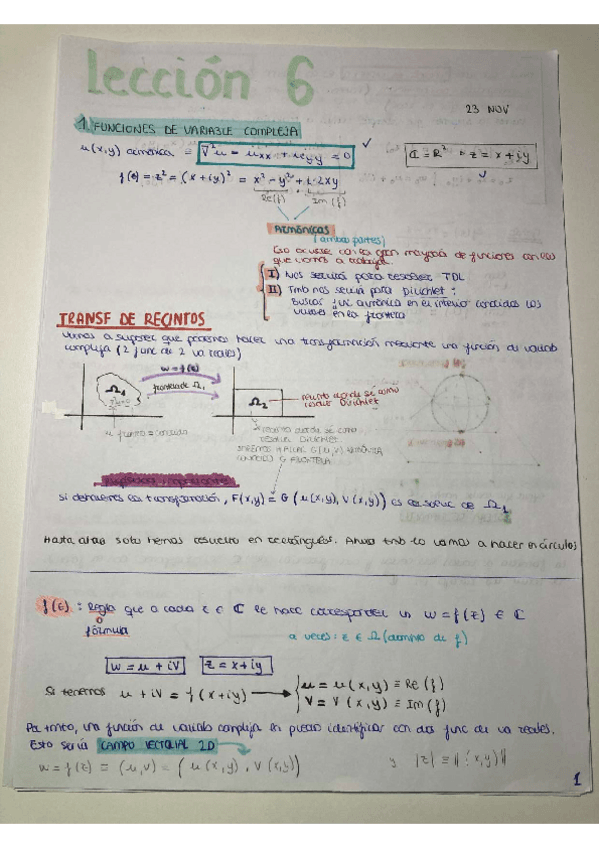 lección 6
23 NOV
1. FUNCIONES DE VARIABLE COMPLEJA
u(x,y) armónica ≡ ∇²u = uxx + uyy = 0
ℂ = ℝ² z = x + iy
f(z) = z² = (x + iy)² = x² - y² + i·2xy
Re(f) Im(f)
Armónicas
(ambas partes)
Eso ocurre con la gran mayoría de funciones con las
que vamos a trabajar.
I) Nos servirá para resolver
II) Tmb nos servirá para Dirichlet:
Buscar func armónica en el interior conocidos los
valores en la frontera
TRANSF DE RECINTOS
Vamos a suponer que podemos hacer una transformación mediante una función de variable
compleja (2 func de 2 va reales)
w = f(z)
Ω₁
frontera de Ω₁
Ω₂
recinto donde sé como
resolver Dirichlet
u frontera = conocida
recinto donde sé como
resolver Dirichlet
G(u,v) ARMÓNICA
FRONTERA
si deshacemos la transformación, F(x,y) = G(u(x,y), v(x,y)) es la soluc de Ω₁
Hasta ahora solo hemos resuelto en rectángulos. Ahora tmb lo vamos a hacer en círculos
f(z): Regla que a cada z ∈ ℂ le hace corresponder un w = f(z) ∈ ℂ
o
fórmula
a veces: z ∈ Ω (dominio de f)
w = u + iv
z = x + iy
Si tenemos u + iv = f(x + iy) → u = u(x,y) ≡ Re(f)
v = v(x,y) ≡ Im(f)
Por tanto, una función de variable compleja se puede identificar con dos func de va reales.
Esto sería CAMPO VECTORIAL 2D
w = f(z) = (u,v) = (u(x,y), v(x,y))
y |z| = ||(x,y)||
1